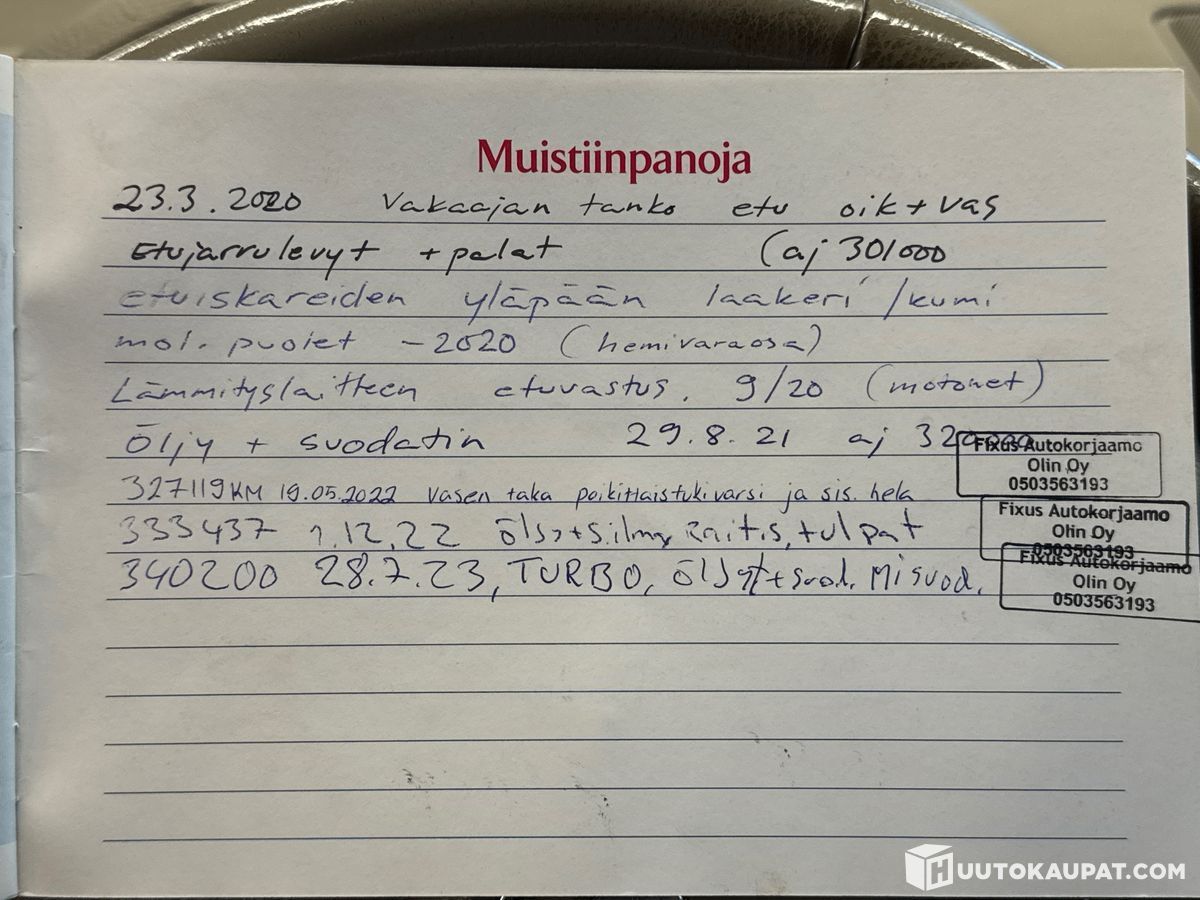 Muistiinpanoja
23.3.2020 Vakaajan tanko etu oik + vas
Etujarrulevyt + palat (aj 301000
etuiskareiden yläpään laakeri /kumi
mol. puolet - 2020 (hemivaraosa)
Lämmityslaitteen etuvastus. 9/20 (motonet)
Öljy + suodatin 29.8.21 aj 320000
Fixus Autokorjaamo
Olin Oy
0503563193
327119KM 19.05.2022 vasen taka poikittaistukivarsi ja sis. hela
Fixus Autokorjaamo
Olin Oy
0503563193
333437 1.12.22 tulpat
340200 28.7.23, TURBO, öljyt+suod.
Fixus Autokorjaamo
Olin Oy
0503563193
HUUTOKAUPAT.COM